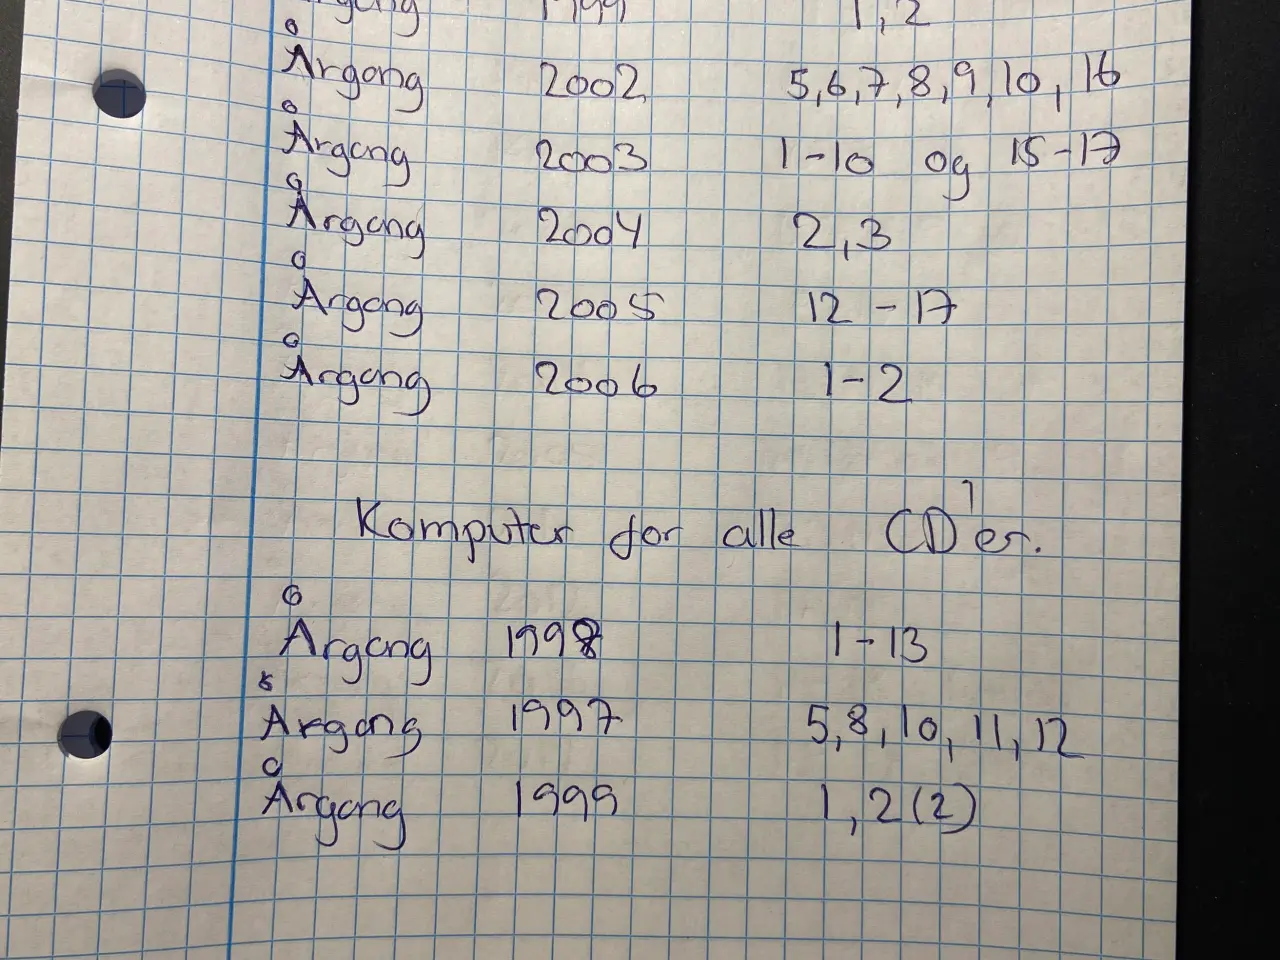 Årgang 1999 1, 2
Årgang 2002 5, 6, 7, 8, 9, 10, 16
Årgang 2003 1-10 og 15-17
Årgang 2004 2, 3
Årgang 2005 12-17
Årgang 2006 1-2
Komputer for alle CD'er.
Årgang 1998 1-13
Årgang 1997 5, 8, 10, 11, 12
Årgang 1999 1, 2 (2)